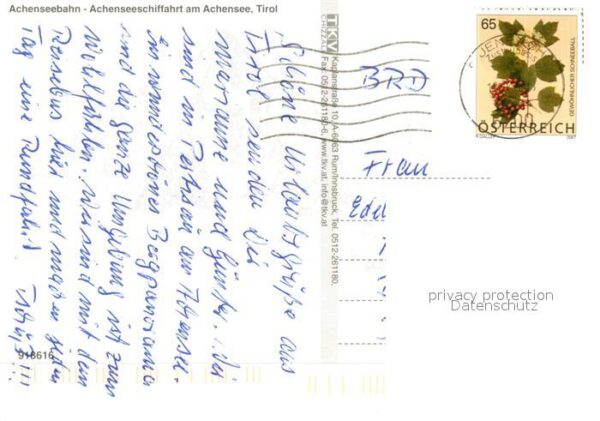 Achenseebahn - Achenseeschiffahrt am Achensee, Tirol
Schöne Urlaubsgrüße aus
Tirol senden Dir
Marianne und Günter. Wir
sind in Pertisau am Achensee.
Ein wunderschönes Bergpanorama
und die ganze Umgebung ist zum
Wohlfühlen. Wir sind mit dem
Reisebus hier und machen jeden
Tag eine Rundfahrt. Tschüß!!!
918616
TKV
Kaplanstraße 10, A-6063 Rum/Innsbruck, Tel. 0512-261180,
Fax: 0512-261180, www.tkv.at, info@tkv.at
BRD
Frau
Edel
65
GEWÖHNLICHER SCHNEEBALL
ÖSTERREICH
2007
privacy protection
Datenschutz